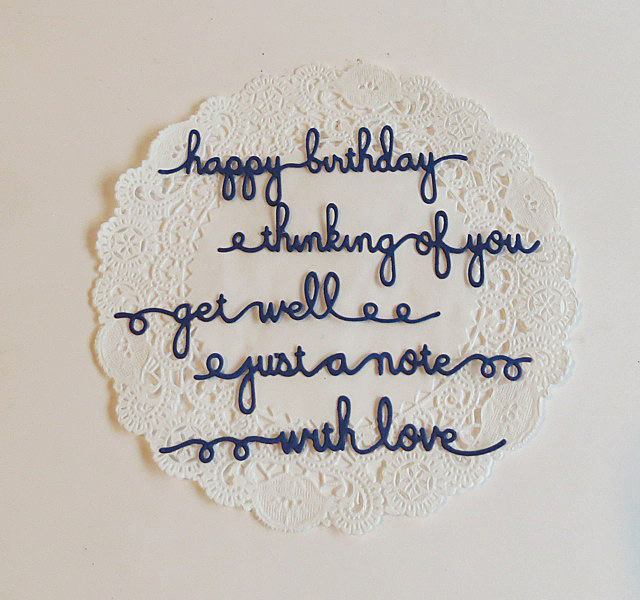 happy birthday
thinking of you
get well
just a note
with love